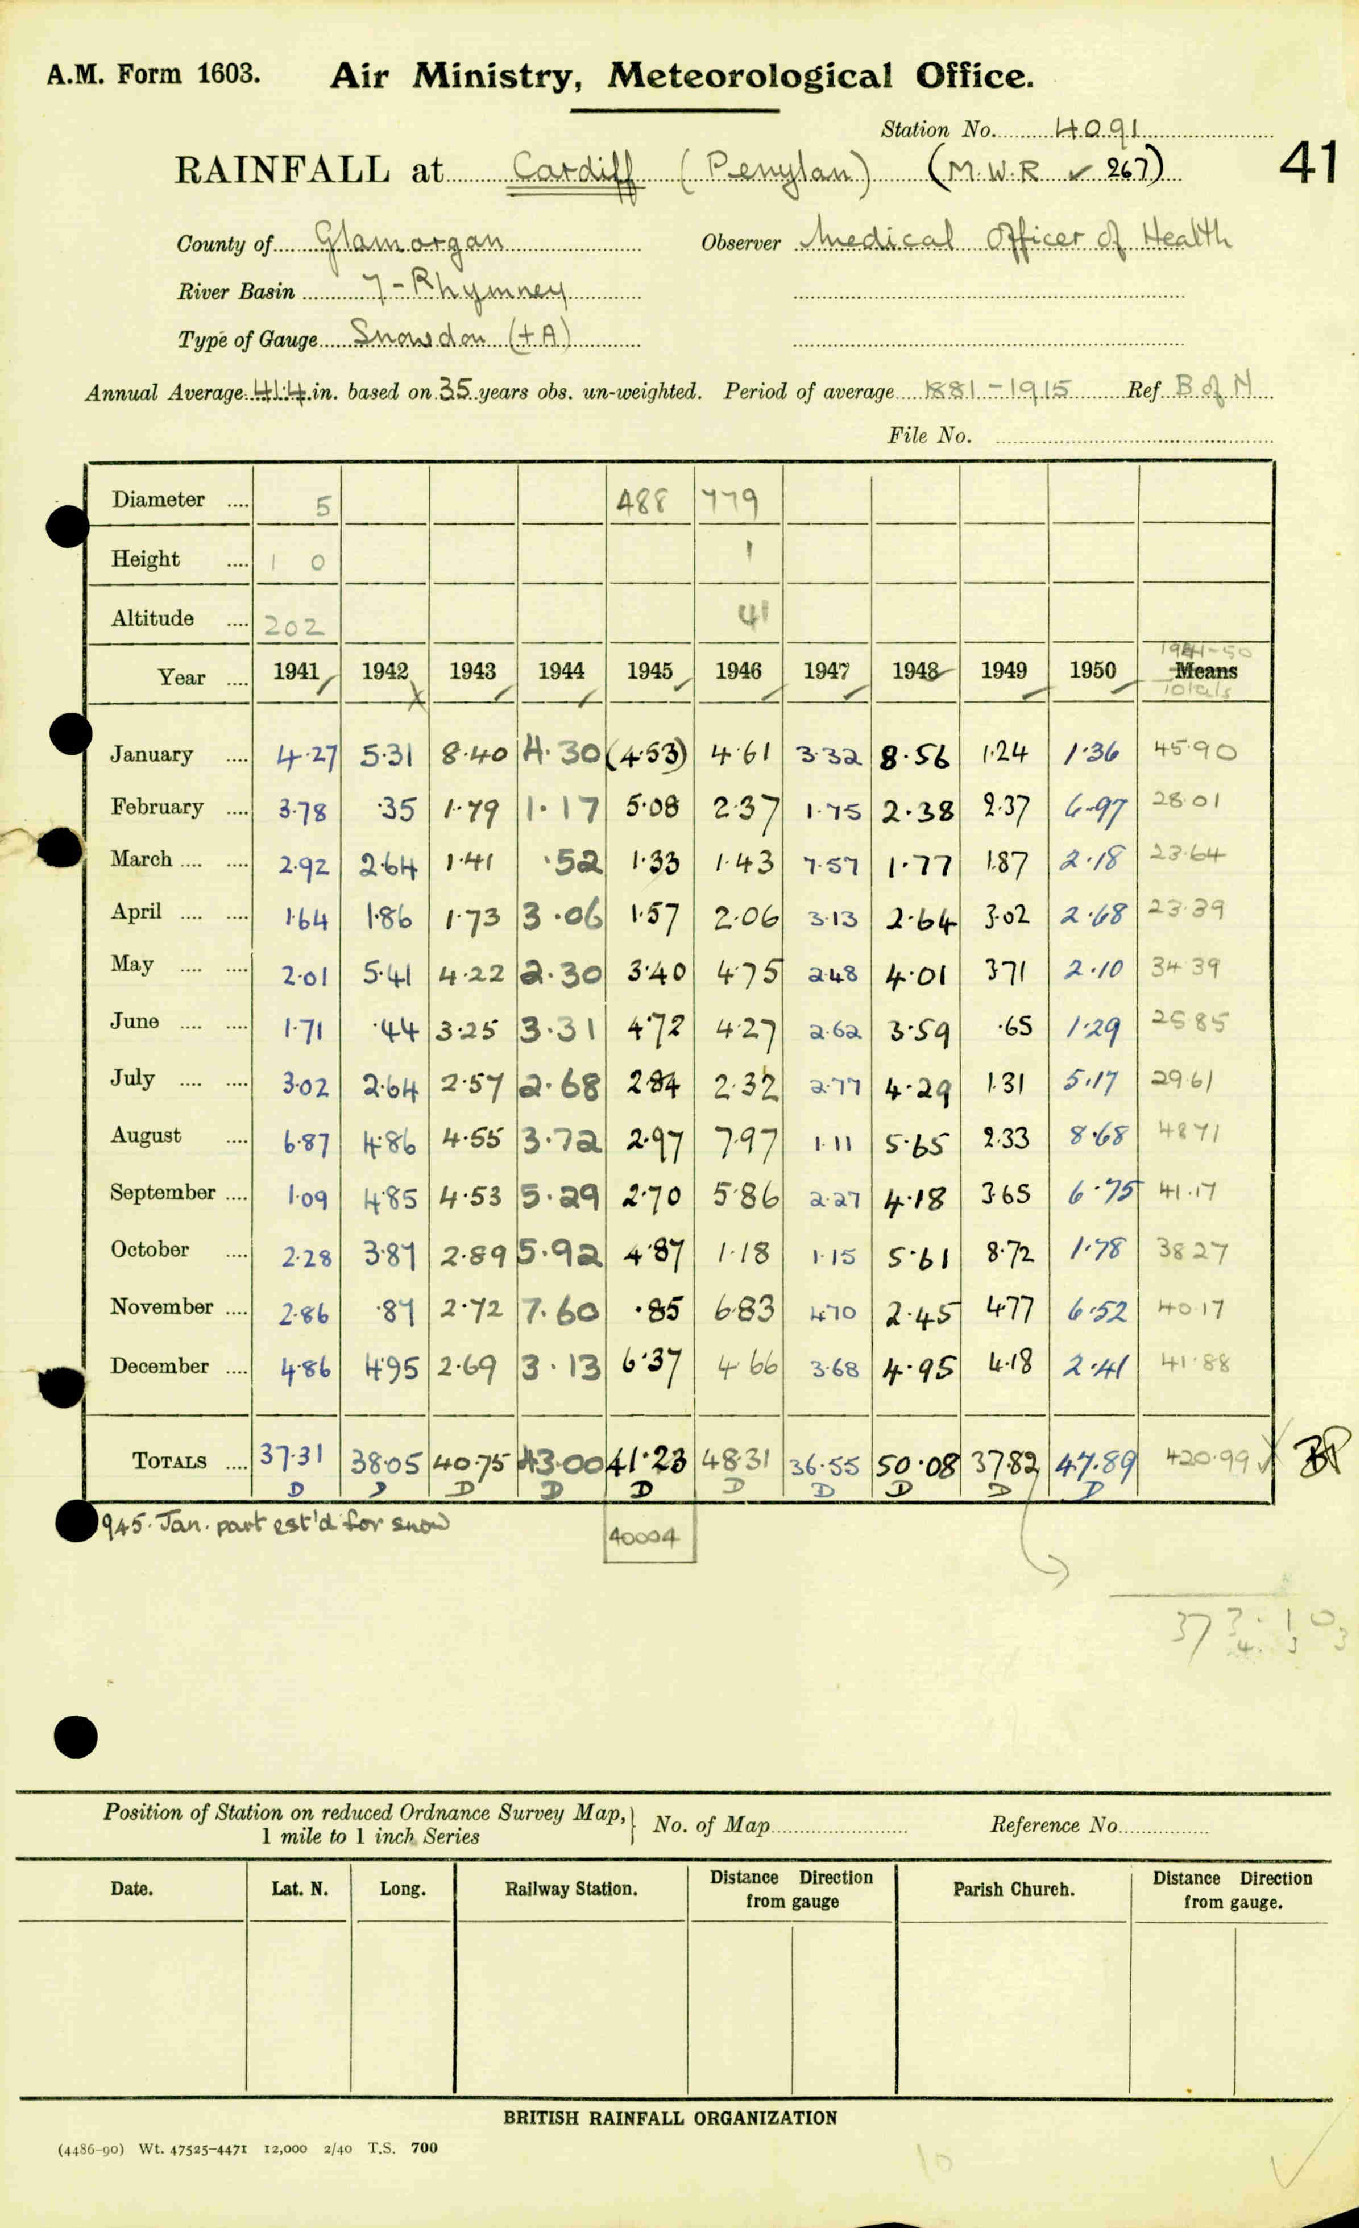 A.M. Form 1603. Air Ministry, Meteorological Office.
Station No. 4091
RAINFALL at Cardiff (Penylan) (M.W.R ✓ 267) 41
County of Glamorgan Observer Medical Officer of Health
River Basin 7-Rhymney
Type of Gauge Snowdon (+A)
Annual Average 41.4 in. based on 35 years obs. un-weighted. Period of average 1881-1915 Ref. B of N
File No.
Diameter .... 5 488 779
Height .... 1 0 1
Altitude .... 202 41
1941-50
Year .... 1941 1942 1943 1944 1945 1946 1947 1948 1949 1950 Means
Totals
January .... 4.27 5.31 8.40 4.30 (4.53) 4.61 3.32 8.56 1.24 1.36 45.90
February .... 3.78 .35 1.79 1.17 5.08 2.37 1.75 2.38 2.37 6.97 28.01
March .... .... 2.92 2.64 1.41 .52 1.33 1.43 7.57 1.77 1.87 2.18 23.64
April .... .... 1.64 1.86 1.73 3.06 1.57 2.06 3.13 2.64 3.02 2.68 23.39
May .... .... 2.01 5.41 4.22 2.30 3.40 4.75 2.48 4.01 3.71 2.10 34.39
June .... .... 1.71 .44 3.25 3.31 4.72 4.27 2.62 3.59 .65 1.29 25.85
July .... .... 3.02 2.64 2.57 2.68 2.84 2.32 2.77 4.29 1.31 5.17 29.61
August .... 6.87 4.86 4.55 3.72 2.97 7.97 1.11 5.65 2.33 8.68 48.71
September .... 1.09 4.85 4.53 5.29 2.70 5.86 2.27 4.18 3.65 6.75 41.17
October .... 2.28 3.87 2.89 5.92 4.87 1.18 1.15 5.61 8.72 1.78 38.27
November .... 2.86 .87 2.72 7.60 .85 6.83 4.70 2.45 4.77 6.52 40.17
December .... 4.86 4.95 2.69 3.13 6.37 4.66 3.68 4.95 4.18 2.41 41.88
TOTALS .... 37.31 38.05 40.75 43.00 41.23 48.31 36.55 50.08 37.82 47.89 420.99
D D D D D D D D D D
945. Jan. part est'd for snow 40004
Position of Station on reduced Ordnance Survey Map, No. of Map Reference No.
1 mile to 1 inch Series
Date. Lat. N. Long. Railway Station. Distance Direction from gauge Parish Church. Distance Direction from gauge.
BRITISH RAINFALL ORGANIZATION
(4486-90) Wt. 47525-4471 12,000 2/40 T.S. 700
10